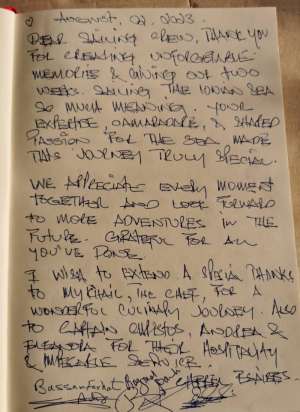 August, 22, 2023.
DEAR SAILING CREW, THANK YOU
FOR CREATING UNFORGETTABLE
MEMORIES & GIVING OUR TWO
WEEKS SAILING THE IONIAN SEA
SO MUCH MEANING. YOUR
EXPERTISE, CAMARADARIE, & SHARED
PASSION FOR THE SEA MADE
THIS JOURNEY TRULY SPECIAL.
WE APPRECIATE EVERY MOMENT
TOGETHER AND LOOK FORWARD
TO MORE ADVENTURES IN THE
FUTURE. GRATEFUL FOR ALL
YOU'VE DONE.
I WISH TO EXTEND A SPECIAL THANKS
TO MYKHAIL, THE CHEF, FOR A
WONDERFUL CULINARY JOURNEY. ALSO
TO CAPTAIN CHRISTOS, ANDREA &
ELEANORA FOR THEIR HOSPITALITY
& IMPECCABLE SERVICE.
Bassam Farhat